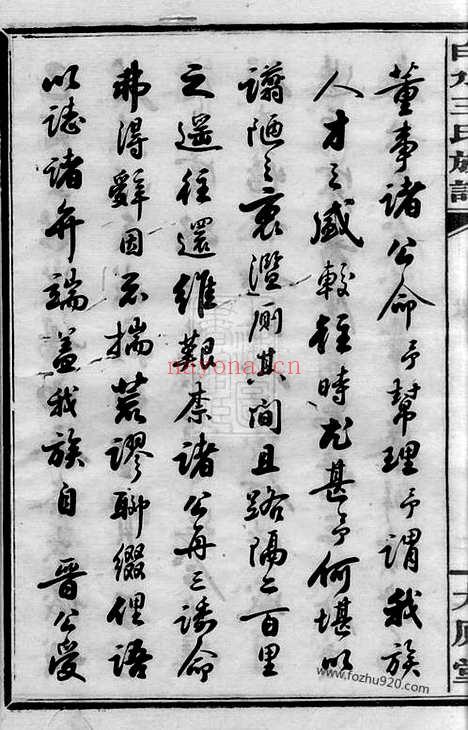 董事諸公命予幫理予謂我族
人才之盛較往時尤甚予何堪以
譾陋之衷濫厠其間且路隔二百里
之遥往還維艱柰諸公再三命
弗得辭因不揣荒謬聊綴俚語
以誌諸弁端蓋我族自 晉公受
nayona.cn
www.fozhu920.com